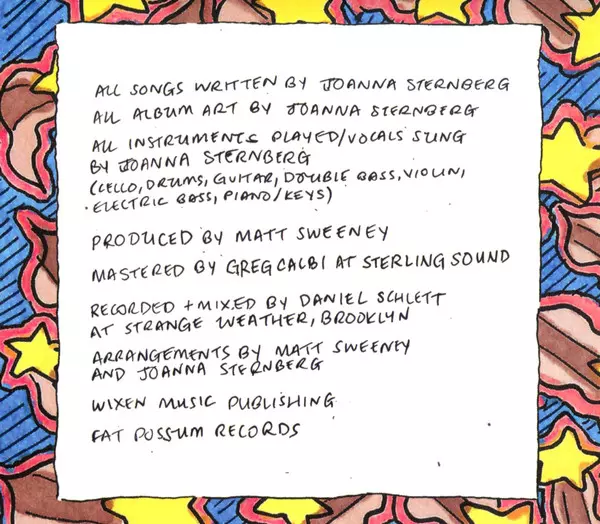 ALL SONGS WRITTEN BY JOANNA STERNBERG
ALL ALBUM ART BY JOANNA STERNBERG
ALL INSTRUMENTS PLAYED/VOCALS SUNG
BY JOANNA STERNBERG
(CELLO, DRUMS, GUITAR, DOUBLE BASS, VIOLIN,
ELECTRIC BASS, PIANO/KEYS)
PRODUCED BY MATT SWEENEY
MASTERED BY GREG CALBI AT STERLING SOUND
RECORDED + MIXED BY DANIEL SCHLETT
AT STRANGE WEATHER, BROOKLYN
ARRANGEMENTS BY MATT SWEENEY
AND JOANNA STERNBERG
WIXEN MUSIC PUBLISHING
FAT POSSUM RECORDS